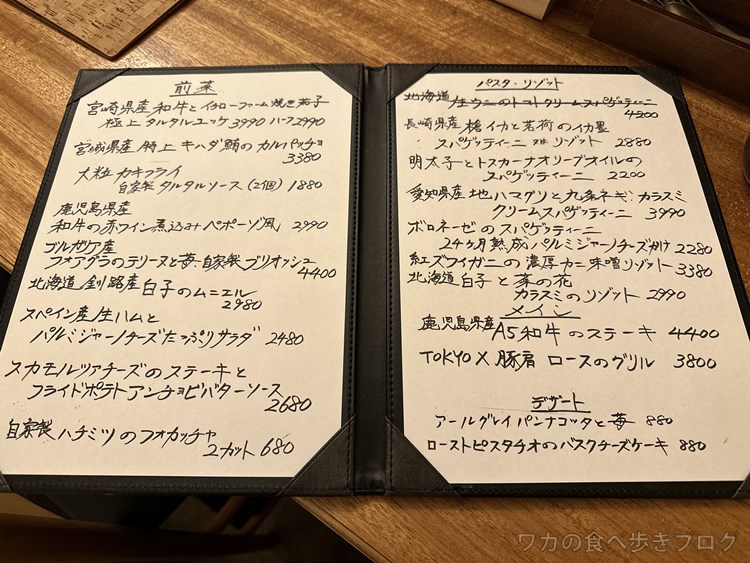 前菜
宮崎県産 和牛とイエローファーム焼き茄子
極上タルタルユッケ 3990 ハーフ2990
宮城県産 特上 キハダ鮪のカルパッチョ
3380
大粒 カキフライ
自家製タルタルソース (2個) 1880
鹿児島県産
和牛の赤ワイン煮込みペポーゾ風 2990
ブルガリア産
フォアグラのテリーヌと苺 自家製ブリオッシュ
4400
北海道 釧路産 白子のムニエル
2980
スペイン産 生ハムと
パルミジャーノチーズたっぷりサラダ 2480
スカモルツァチーズのステーキと
フライドポテトアンチョビバターソース
2680
自家製 ハチミツのフォカッチャ
2カット 680
パスタ・リゾット
北海道 生ウニのトマトクリームスパゲッティーニ
4200
長崎県産 槍イカと茗荷のイカ墨
スパゲッティーニ or リゾット 2880
明太子とトスカーナオリーブオイルの
スパゲッティーニ 2200
愛知県産 地ハマグリと九条ネギ カラスミ
クリームスパゲッティーニ 3990
ボロネーゼのスパゲッティーニ
24ヶ月熟成パルミジャーノチーズがけ 2280
紅ズワイガニの濃厚カニ味噌リゾット 3380
北海道 白子と菜の花
カラスミのリゾット 2990
メイン
鹿児島県産 A5和牛のステーキ 4400
TOKYO X 豚肩ロースのグリル 3800
デザート
アールグレイパンナコッタと苺 880
ローストピスタチオのバスクチーズケーキ 880
ワカの食べ歩きブログ